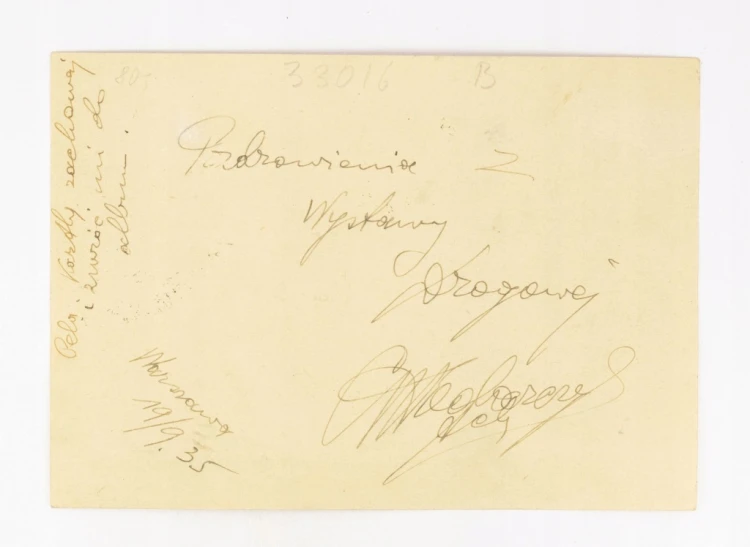 80,-
33016
B
Pozdrowienia z
Wystawy
Drogowej
Warszawa
19/9.35
kartkę zachowaj
i zwróć mi do
album.